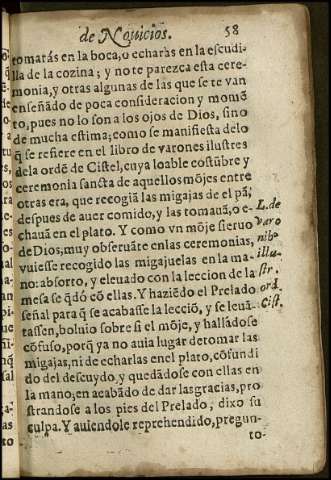 de Nouicios. 58
tomarás en la boca, o echarás en la escudi-
lla de la cozina; y no te parezca esta cere-
monia, y otras algunas de las que se te van
enseñado de poca consideracion y momẽ
to, pues no lo son a los ojos de Dios, sino
de mucha estima; como se manifiesta delo
q̃ se refiere en el libro de varones ilustres
dela ordẽ de Cistel, cuya loable costũbre y
ceremonia sancta de aquellos mõjes entre
otras era, que recogiã las migajas de el pã,
despues de auer comido, y las tomauã, o e-
chauã en el plato. Y como vn mõje sieruo
de Dios, muy obseruãte enlas ceremonias,
vuiesse recogido las migajuelas en la ma-
no: absorto, y eleuado con la leccion de la
mesa se q̃dó cõ ellas. Y haziẽdo el Prelado
señal para q̃ se acabasse la lecciõ, y se leuã-
tassen, boluio sobre si el mõje, y hallãdose
cõfuso, porq̃ ya no auia lugar de tomar las
migajas, ni de echarlas en el plato, cõfundi
do del descuydo, y quedãdose con ellas en
la mano; en acabãdo de dar las gracias, pro
strandose a los pies del Prelado, dixo su
culpa. Y auiendole reprehendido, pregun-
to-
L. de
varo
nibꝰ
illu-
str.
ord.
Cist.